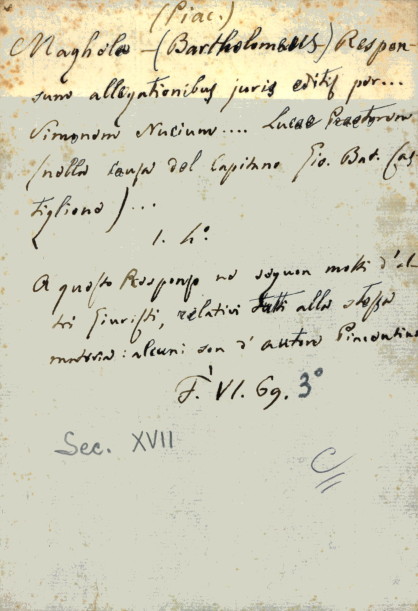 (Piac.)
Maghola - (Bartholomeus) Respon-
sum allegationibus juris editis per...
Simonem Nucium.... Lucae Praetorem
(nella causa del Capitano Gio. Bat. Cas
tiglione) ...
1. 4°
A questo Responso ne seguon molti d'al
tri Giuristi, relativi tutti alla stessa
materia: alcuni son d'autore Piacentino
F. VI. 69. 3°
Sec. XVII
C